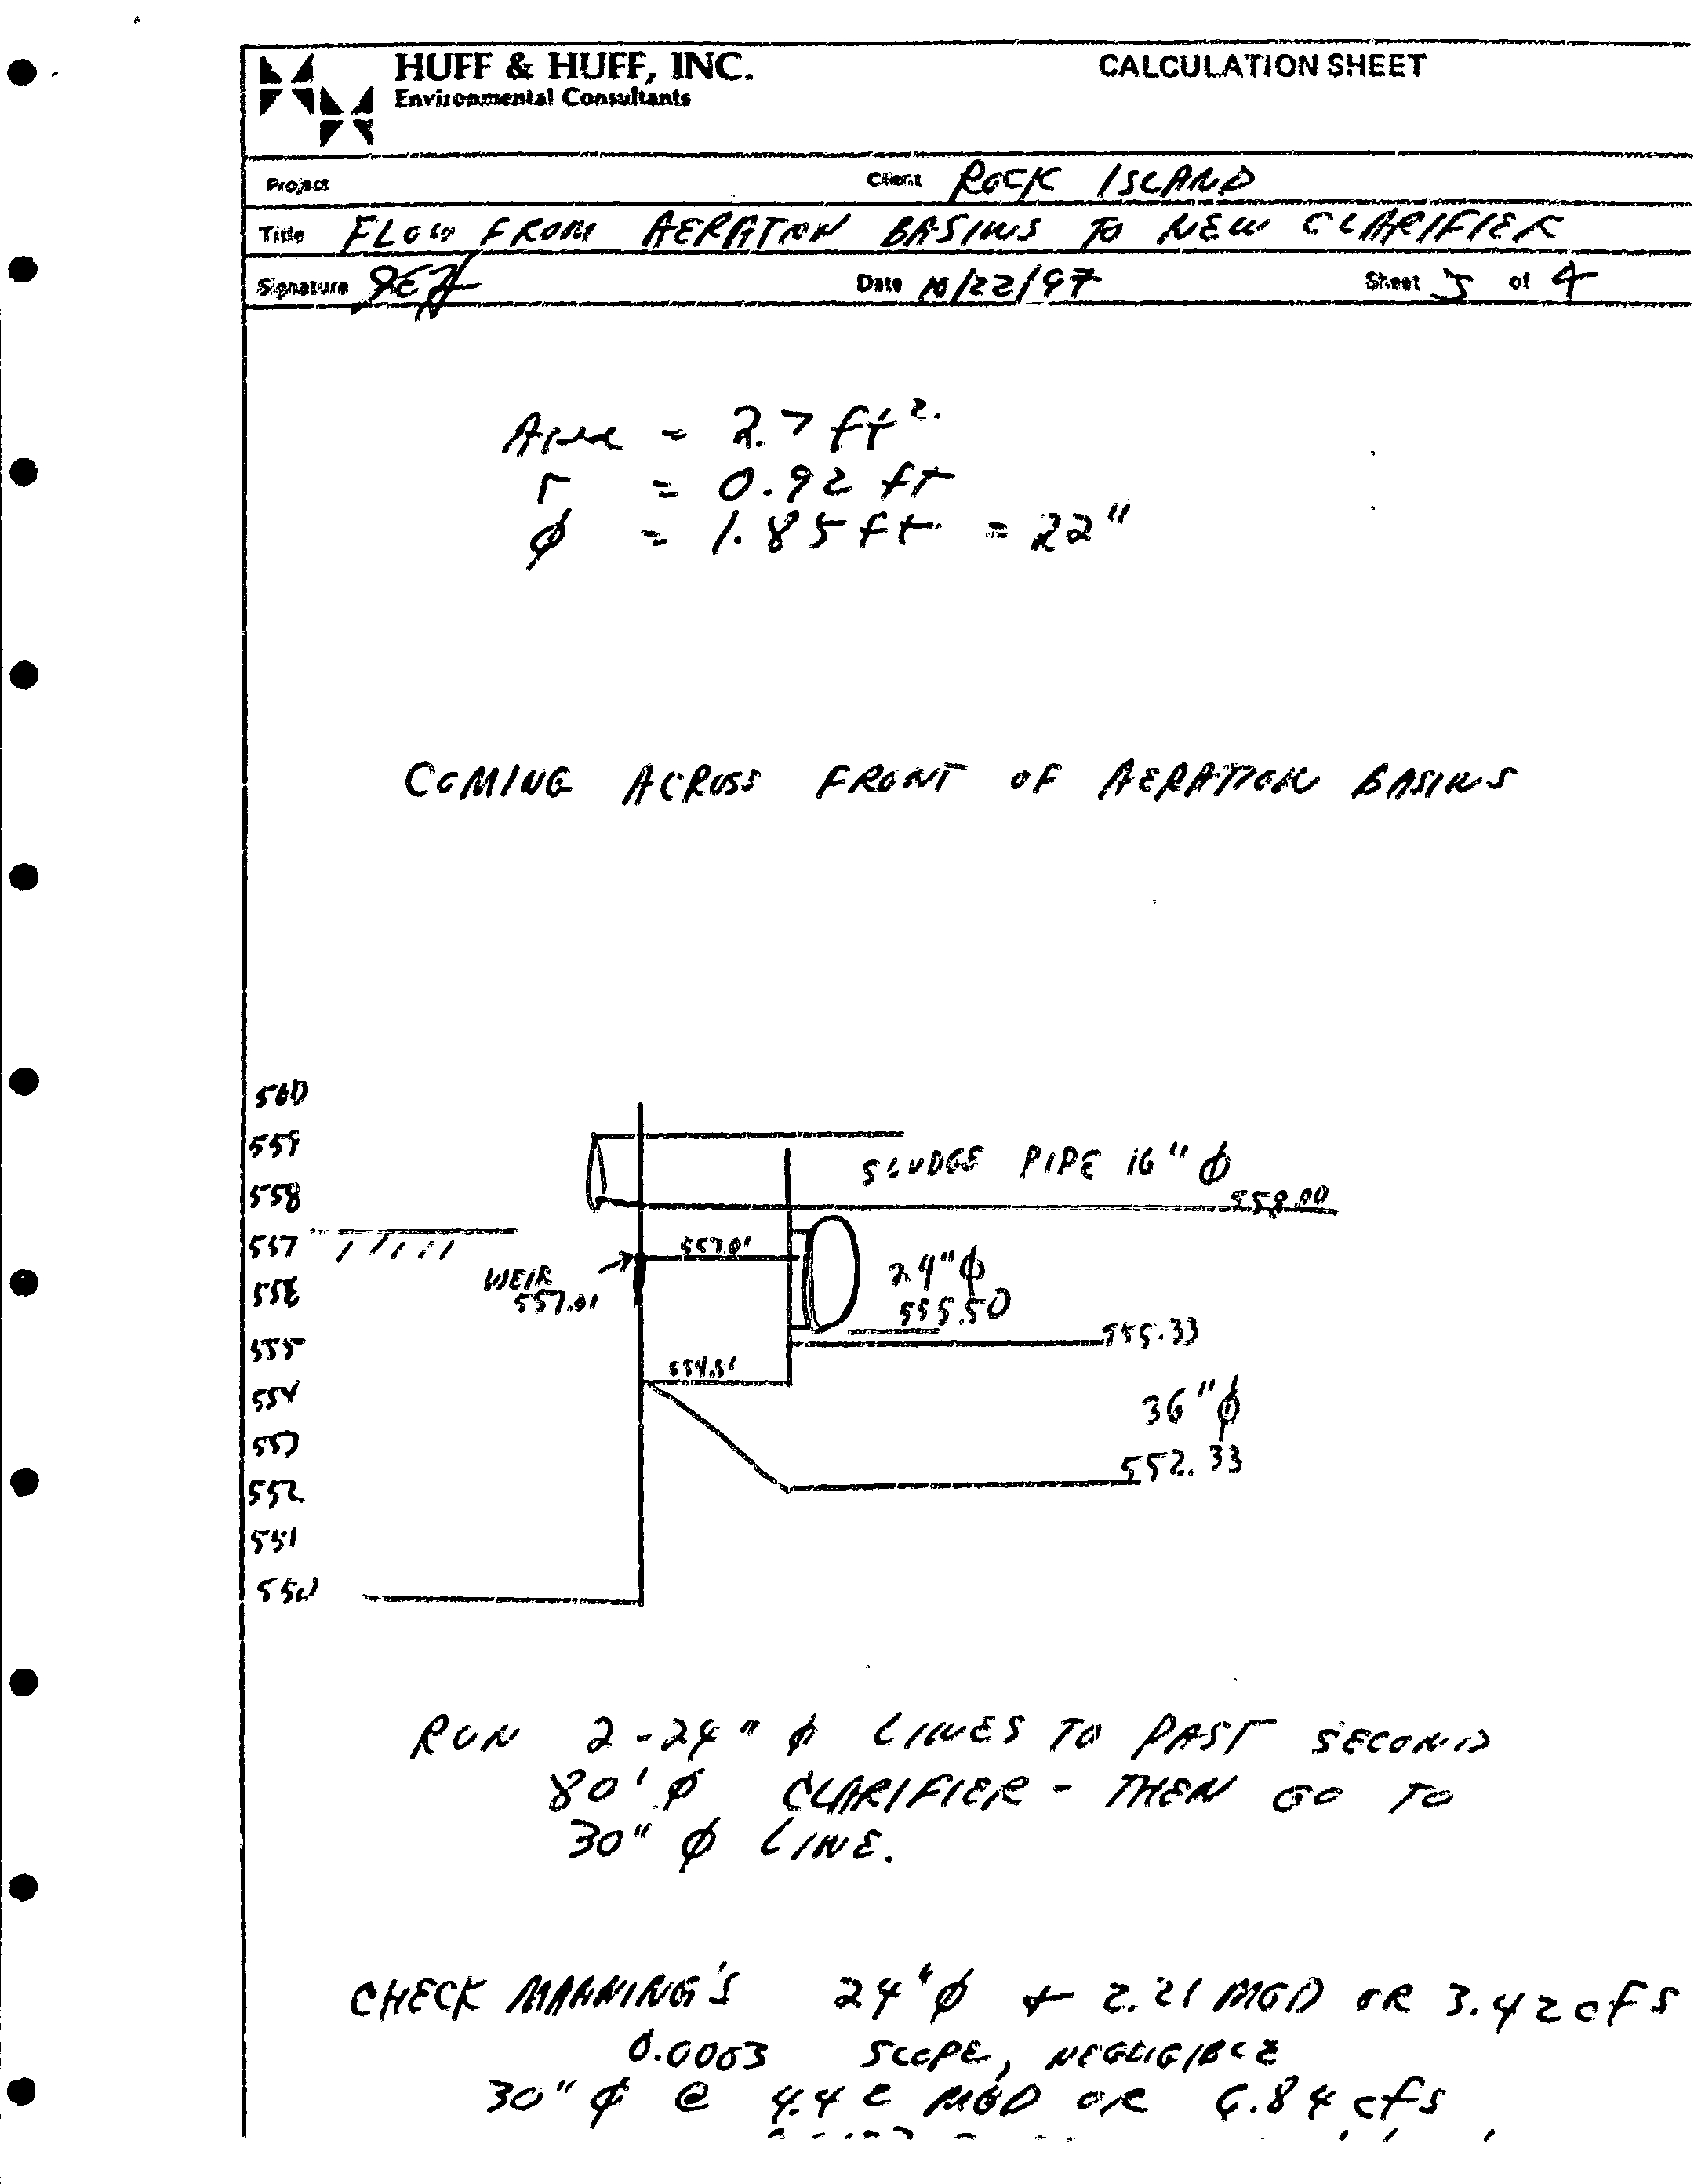 HUFF & HUFF, INC.
Environmental Consultants
CALCULATION SHEET
Project
Client ROCK ISLAND
Title FLOW FROM AERATION BASINS TO NEW CLARIFIER
Signature JEH
Date 10/22/97
Sheet 3 of 4
Area = 2.7 ft²
r = 0.92 ft
φ = 1.85 ft = 22"
COMING ACROSS FRONT OF AERATION BASINS
560
559
558
557
556
555
554
553
552
551
550
SLUDGE PIPE 16" φ
558.00
557.01
WEIR
557.01
24" φ
555.50
555.33
554.51
36" φ
552.33
RUN 2-24" φ LINES TO PAST SECOND
80' φ CLARIFIER - THEN GO TO
30" φ LINE.
CHECK MANNING'S 24" φ + 2.21 MGD OR 3.42 cfs
0.0003 SLOPE, NEGLIGIBLE
30" φ @ 4.42 MGD OR 6.84 cfs